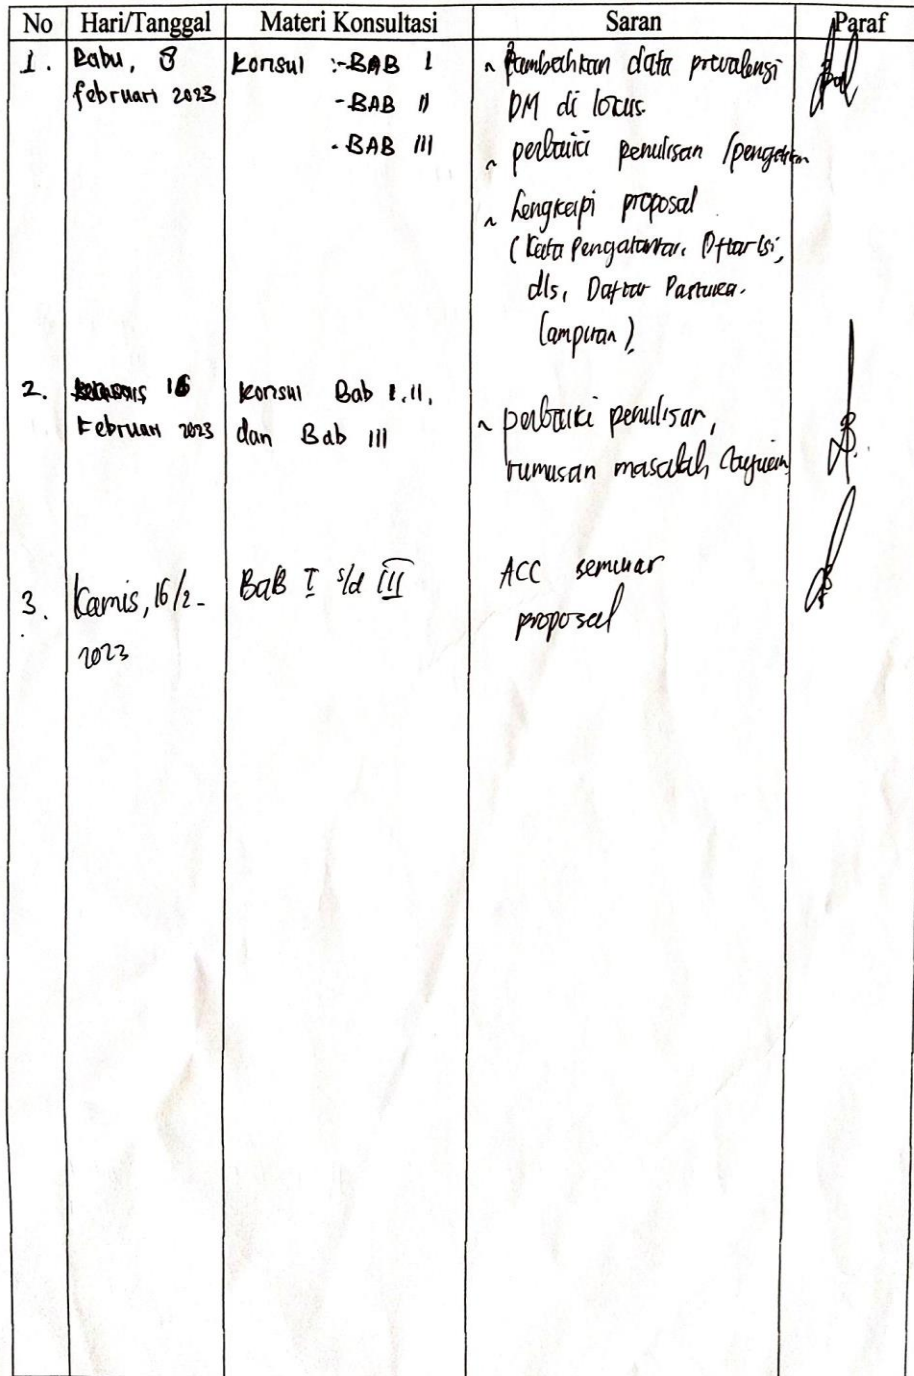 No Hari/Tanggal Materi Konsultasi Saran Paraf
1. Rabu, 8 februari 2023
Konsul :-BAB I
-BAB II
-BAB III
~ Tambahkan data prevalensi
DM di locus.
~ perbaiki penulisan /pengetikan
~ Lengkapi proposal
(Kata Pengatantar. Dftar Isi,
dls, Daftar Pastuka.
Lampiran).
2. 16 Februari 2023
Konsul Bab I.II.
dan Bab III
~ perbaiki penulisan,
rumusan masalah,
3. Kamis, 16/2-
2023
BaB I s/d III
ACC seminar
proposal